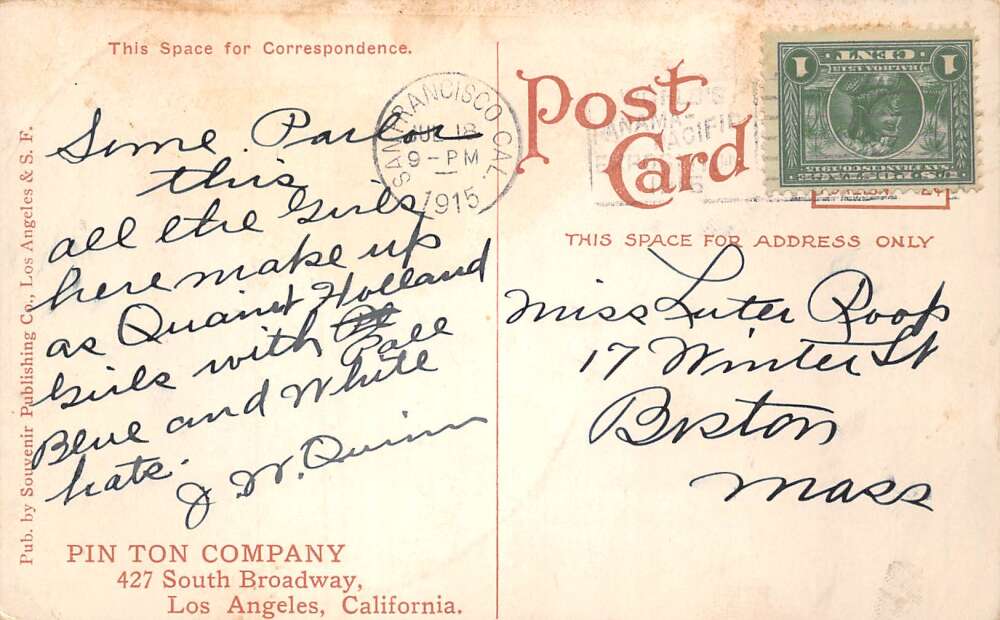 This Space for Correspondence.
Some Parlor
this
all the Girls
here make up
as Quaint Holland
Girls with
Pale
Blue and White
hats.
J. W. Quinn
PIN TON COMPANY
427 South Broadway,
Los Angeles, California.
Pub. by Souvenir Publishing Co., Los Angeles & S. F.
SAN FRANCISCO CAL.
JUL 18
9-PM
1915
Post Card
PANAMA
PACIFIC
1 CENT 1
U.S. POSTAGE
THIS SPACE FOR ADDRESS ONLY
Miss Luter Roop
17 Winter St
Boston
Mass